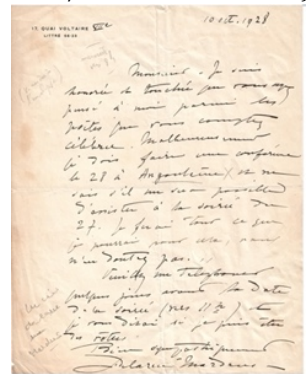 17, QUAI VOLTAIRE VIIe
LITTRÉ
10 oct. 1928
Monsieur. Je suis
honorée et touchée que vous ayez
pensé à moi parmi les
poètes que vous comptez
célébrer. Malheureusement
je dois faire une conférence
le 28 à Angoulême et ne
sais s'il me sera possible
d'assister à la soirée du
27. Je ferai tout ce que
je pourrai pour cela, vous
n'en doutez pas.
Veuillez me téléphoner
quelques jours avant la date
de la soirée (vers 11h) et
je vous dirai si je puis être
des vôtres.
Bien sympathiquement
Delarue Mardrus